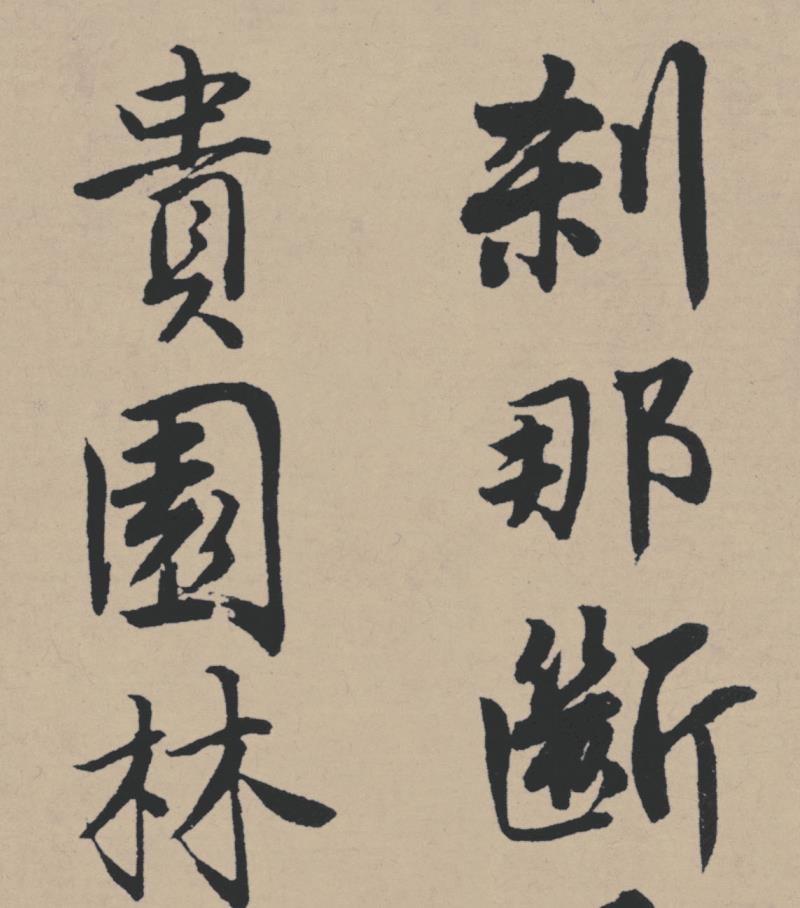 刹那斷
貴園林